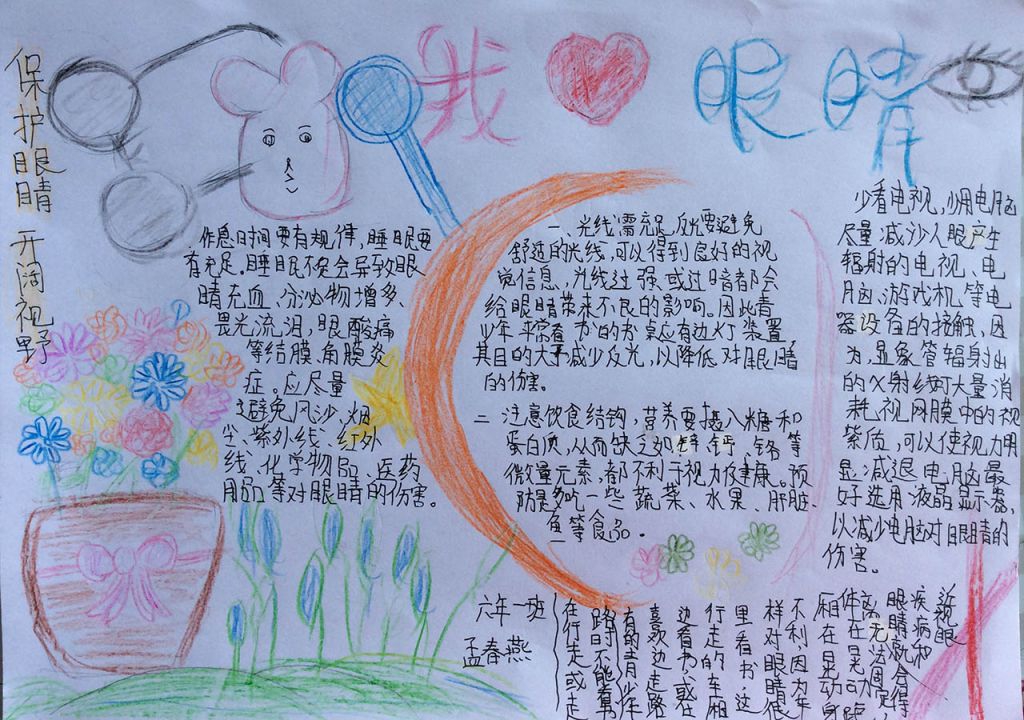 我 眼睛
保护眼睛 开阔视野
作息时间要有规律，睡眠要
有充足。睡眠不足会导致眼
睛充血、分泌物增多、
畏光流泪，眼酸痛
等结膜、角膜炎
症。应尽量
避免风沙、烟
尘、紫外线、红外
线、化学物品、医药
用品等对眼睛的伤害。
一、光线需充足，反光要避免
舒适的光线，可以得到良好的视
觉信息，光线过强或过暗都会
给眼睛带来不良的影响。因此青
少年平常看书的书桌应有边灯装置，
其目的大于减少反光，以降低对眼睛
的伤害。
二 注意饮食结钩，营养要摄入糖和
蛋白质，从而缺乏如锌、钙、铬等
微量元素，都不利于视力及健康。预
防是多吃一些蔬菜、水果、肝脏、
鱼等食品。
少看电视，少用电脑
尽量减少人眼产生
辐射的电视、电
脑、游戏机等电
器设备的接触，因
为，显象管辐射出
的X射线可大量消
耗视网膜中的视
紫质，可以使视力明
显减退电脑最
好选用液晶显示器，
以减少电脑对眼睛的
伤害。
六年一班
孟春燕
在行走或走
路时不能看书
有的青少年
喜欢边走路
边看书，或在
行走的车厢
里看书，这
样对眼睛很
不利，因为车
厢在晃动，身
体在晃动